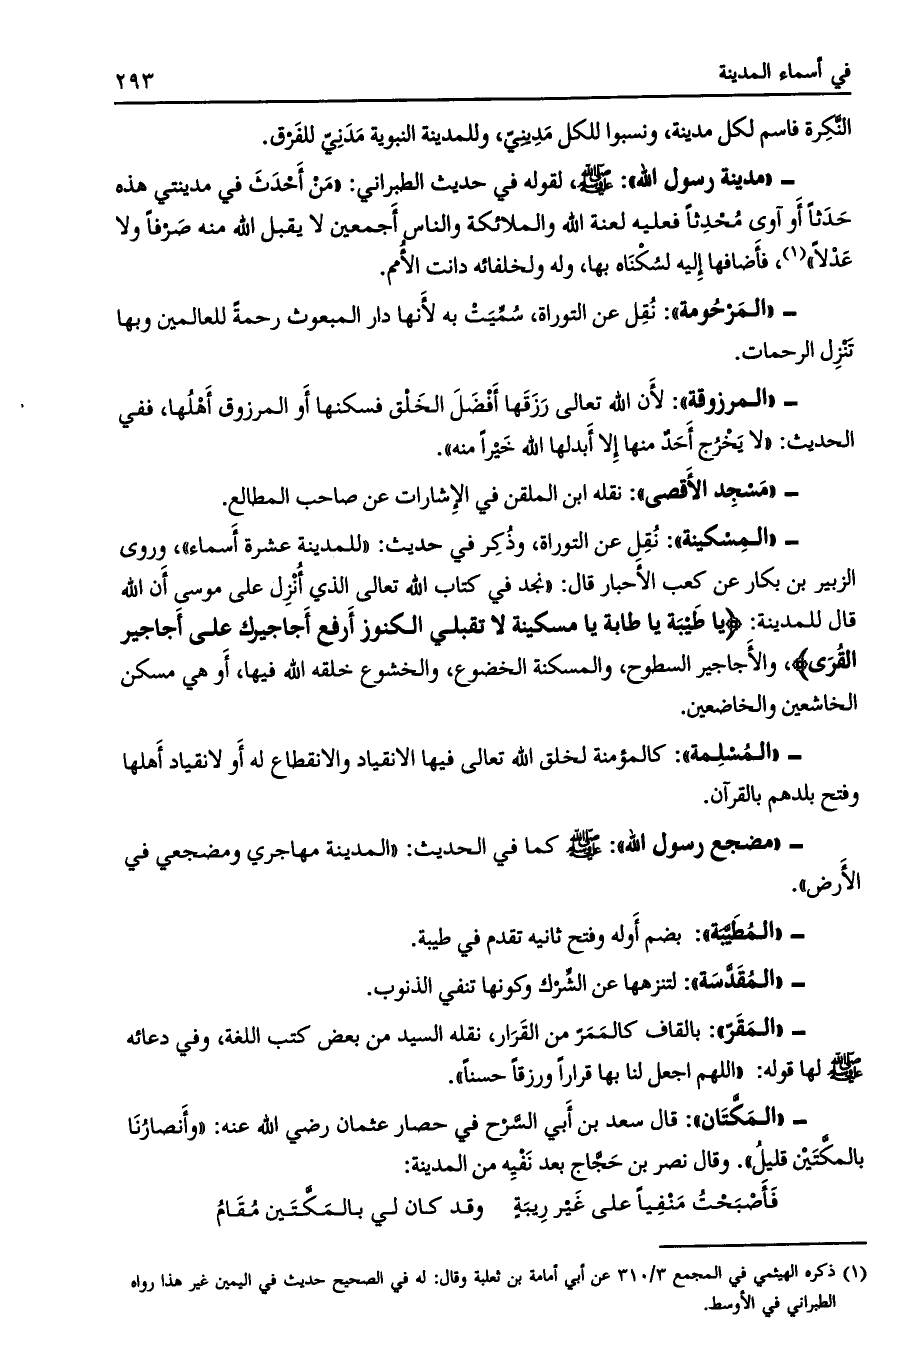 في أسماء المدينة ٢٩٣
النَّكِرة فاسم لكل مدينة، ونسبوا للكل مَدِينِيّ، وللمدينة النبوية مَدَنِيّ للفَرْق.
ـ «مدينة رسول الله»: ﷺ، لقوله في حديث الطبراني: «مَنْ أَحْدَثَ في مدينتي هذه
حَدَثاً أَو آوى مُحْدِثاً فعليه لعنة الله والملائكة والناس أَجمعين لا يقبل الله منه صَرْفاً ولا
عَدْلاً»(١)، فأَضافها إِليه لسُكْنَاه بها، وله ولخلفائه دانت الأُمم.
ـ «المَرْحُومة»: نُقِل عن التوراة، سُمِّيَتْ به لأَنها دار المبعوث رحمةً للعالمين وبها
تَنْزِل الرحمات.
ـ «المرزوقة»: لأَن الله تعالى رَزَقَها أَفْضَلَ الخَلْق فسكنها أَو المرزوق أَهْلُها، ففي
الحديث: «لا يَخْرُج أَحَدٌ منها إِلا أَبدلها الله خَيْراً منه».
ـ «مَسْجِد الأَقصى»: نقله ابن الملقن في الإِشارات عن صاحب المطالع.
ـ «المِسْكينة»: نُقِل عن التوراة، وذُكِر في حديث: «للمدينة عشرة أَسماء»، وروى
الزبير بن بكار عن كعب الأَحبار قال: «نجد في كتاب الله تعالى الذي أُنْزِل على موسى أَن الله
قال للمدينة: ﴿يا طَيْبَة يا طابة يا مسكينة لا تقبلي الكنوز أَرفع أَجاجيرك على أَجاجير
القُرَى﴾، والأَجاجير السطوح، والمسكنة الخضوع، والخشوع خلقه الله فيها، أَو هي مسكن
الخاشعين والخاضعين.
ـ «المُسْلِمة»: كالمؤمنة لخلق الله تعالى فيها الانقياد والانقطاع له أَو لانقياد أَهلها
وفتح بلدهم بالقرآن.
ـ «مضجع رسول الله»: ﷺ كما في الحديث: «المدينة مهاجري ومضجعي في
الأَرض».
ـ «المُطَيَّبَة»: بضم أَوله وفتح ثانيه تقدم في طيبة.
ـ «المُقَدَّسَة»: لتنزهها عن الشِّرْك وكونها تنفي الذنوب.
ـ «المَقَرّ»: بالقاف كالمَمَرّ من القَرَار، نقله السيد من بعض كتب اللغة، وفي دعائه
ﷺ لها قوله: «اللهم اجعل لنا بها قراراً ورزقاً حسناً».
ـ «المَكَّتَان»: قال سعد بن أَبي السَّرْح في حصار عثمان رضي الله عنه: «وأَنصارُنَا
بالمكَّتَيْن قليلُ». وقال نصر بن حَجَّاج بعد نَفْيِه من المدينة:
فَأَصْبَحْتُ مَنْفِياً على غَيْر رِيبَةٍ وقد كان لي بالمَكَّتَين مُقَامُ
(١) ذكره الهيثمي في المجمع ٣١٠/٣ عن أبي أمامة بن ثعلبة وقال: له في الصحيح حديث في اليمين غير هذا رواه
الطبراني في الأوسط.